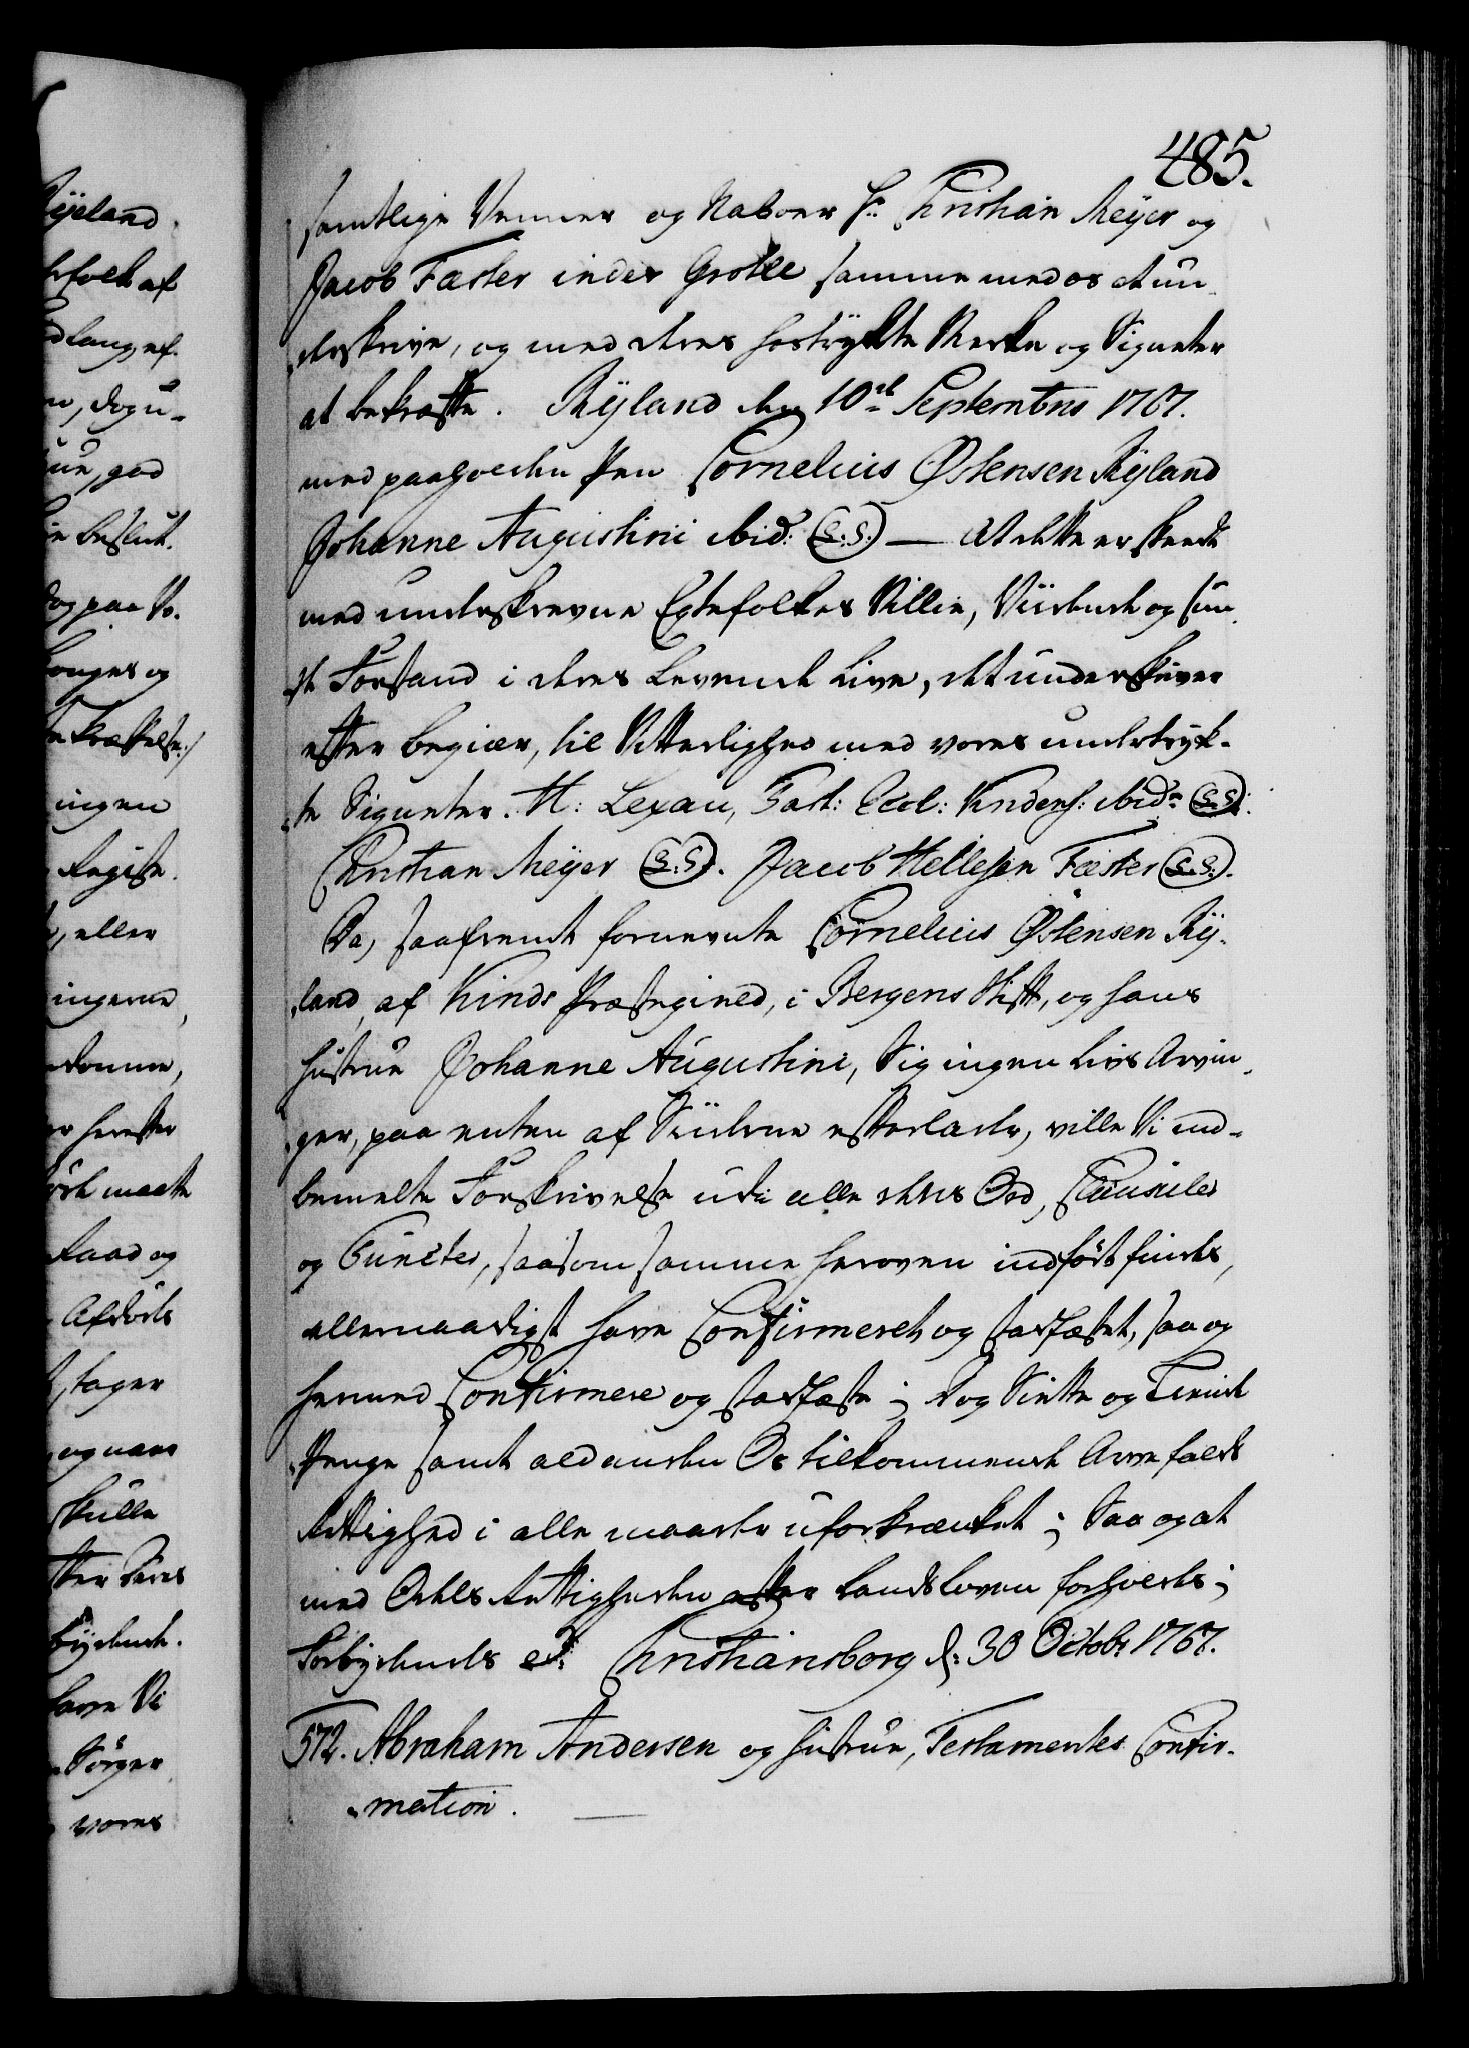 485.
samtlige Venner og Naboer Hr. Christian Meÿer og
Jacob Fæster inder Grotle sammen med os at un-
derskrive, og med deres hostrÿkte Merke og Signeter
at bekræfte. Rÿland den 10de Septembris 1767.
med paaholden Pen Cornelius Østensen Rÿland
Johanne Augustini ibid: (L.S.) — At dette er skeede
med underskrevne Egtefolkes Villie, Viidende og sun-
de Forstand i deres Levende Live, det underskriver
efter begiær, til Vitterlighed med vores undertrÿk-
te Signeter. M: Lexau, Past: Eccl: Kindens: ibid: (L.S.)
Christian Meÿer (L.S.). Jacob Hellesen Fæster (L.S.).
Da, saafremt fornevnte Cornelius Østensen Rÿ-
land, af Kinds Præstegield, i Bergens Stift, og hans
Hustrue Johanne Augustini, Sig ingen Livs Arvin-
ger, paa enten af Siiderne efterlader, ville Vi ind-
bemelte Forskrivelse udi alle dens Ord, Clausuler
og Puncter, saasom samme heroven indført findes,
allernaadigst have Confirmeret og stadfæstet, saa og
hermed Confirmere og stadfæste; Dog Siette og Tiende
Penge samt ald anden Os tilkommende Arve falds
Rettighed i alle maader uforkrænket; Saa og at
med Odels Rettigheden efter Landsloven forholdes;
Forbydendes etc: Christiansborg d: 30 Octobr 1767.
572. Abraham Andersen og Hustrue, Testamentes Confir-
mation.
Rÿeland
folk af
n, dog u-
, god
beslut.
og paa
og
ingen
, eller
ingerne,
er herefter
maatte
Raad og
Afdøds
, tager
og naar
skulle
have Vi
Sørger
vores